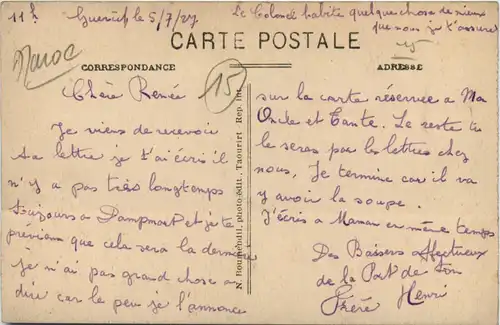 11h Guercif le 5/7/27
Le Colonel habite quelque chose de mieux
que nous je t'assure
CARTE POSTALE
Maroc
CORRESPONDANCE
15
ADRESSE
15
Chère Renée
Je viens de recevoir
ta lettre je t'ai écris il
n'y a pas très longtemps
toujours a Dampmart et je te
préviens que cela sera la dernière
je n'ai pas grand chose a
dire car le peu je l'annonce
N. Boumendil, photo-édit. Taourirt - Rep. int.
sur la carte réservée a Ma
Oncle et Tante. Le reste tu
le seras par les lettres chez
nous. Je termine car il va
y avoir la soupe.
J'écris a Maman en même temps
Des Baisers affectueux
de la Part de ton
Frère Henri